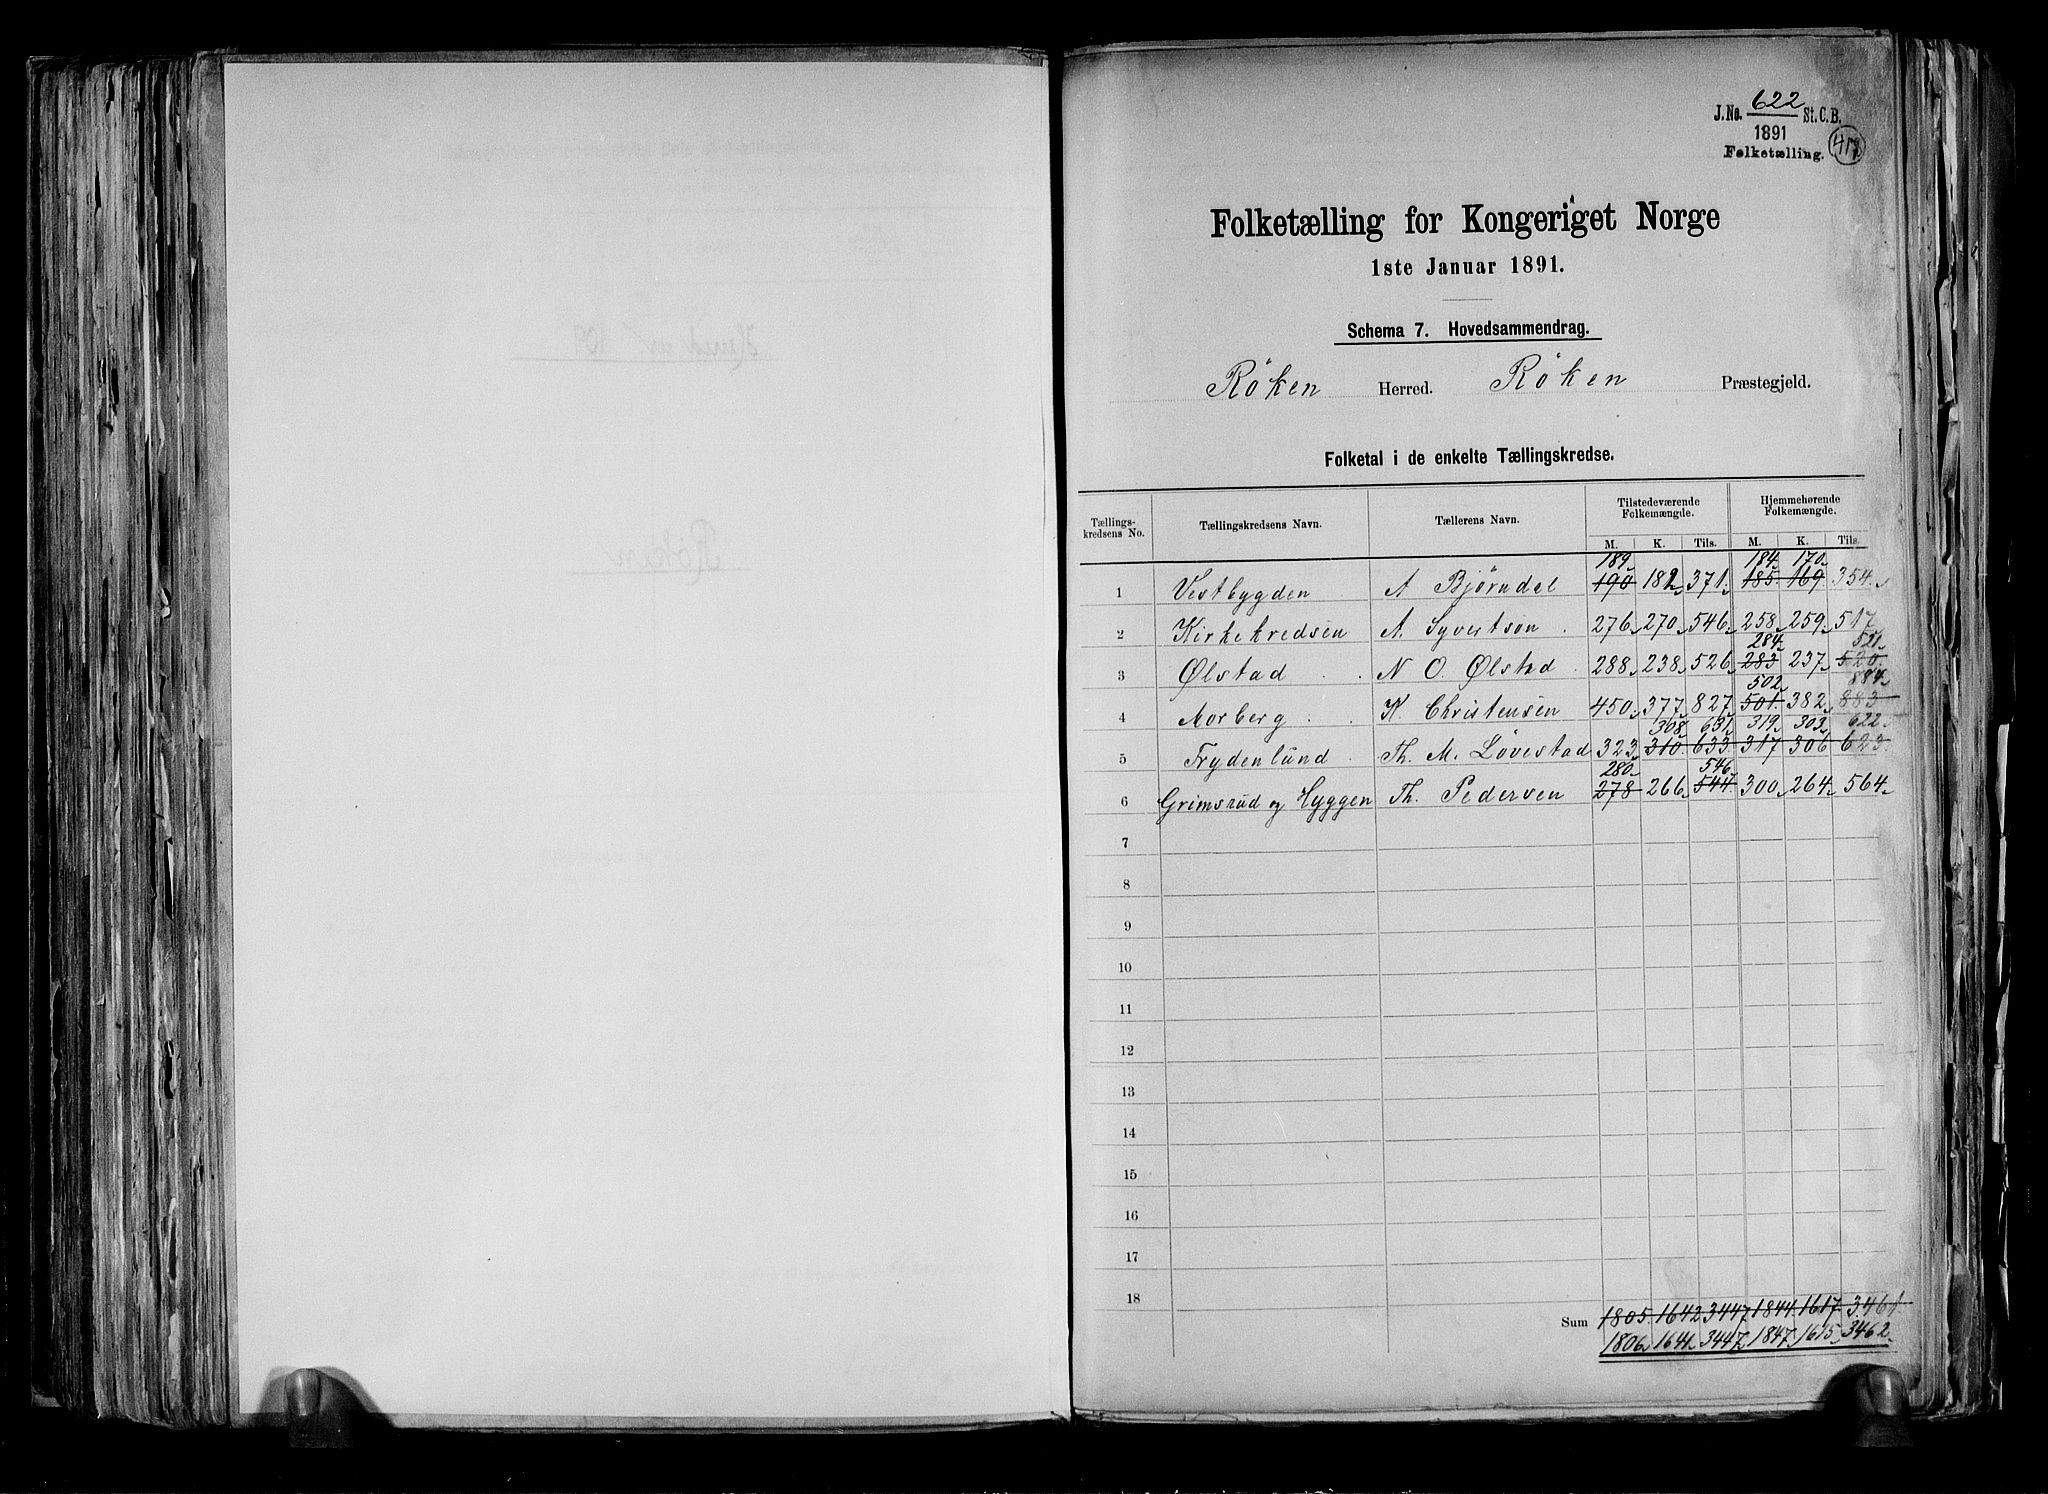 J.No. 622 St. C. B.
1891
Folketælling.
Folketælling for Kongeriget Norge
1ste Januar 1891.
Schema 7. Hovedsammendrag.
Röken Herred. Röken Præstegjeld.
Folketal i de enkelte Tællingskredse.
Tællings-kredsens No. Tællingskredsens Navn. Tællerens Navn. Tilstedeværende Folkemængde. Hjemmehørende Folkemængde.
M. K. Tils. M. K. Tils.
189 184 170
1 Vestbygden A Björndal 190 182 371 185 169 354
2 Kirkekredsen A. Syvertson 276 270 546 258 259 517
284 521
3 Ølstad N O. Ølstad 288 238 526 283 237 520
502 884
4 Aorberg K. Christensen 450 377 827 501 382 883
308 631 319 303 622
5 Frydenlund Th. M. Lövestad 323 310 633 317 306 623
280 546
6 Grimsrud og Hyggen Th. Pedersen 278 266 544 300 264 564
7
8
9
10
11
12
13
14
15
16
17
18
Sum 1805 1642 3447 1844 1617 3461
1806 1641 3447 1847 1615 3462